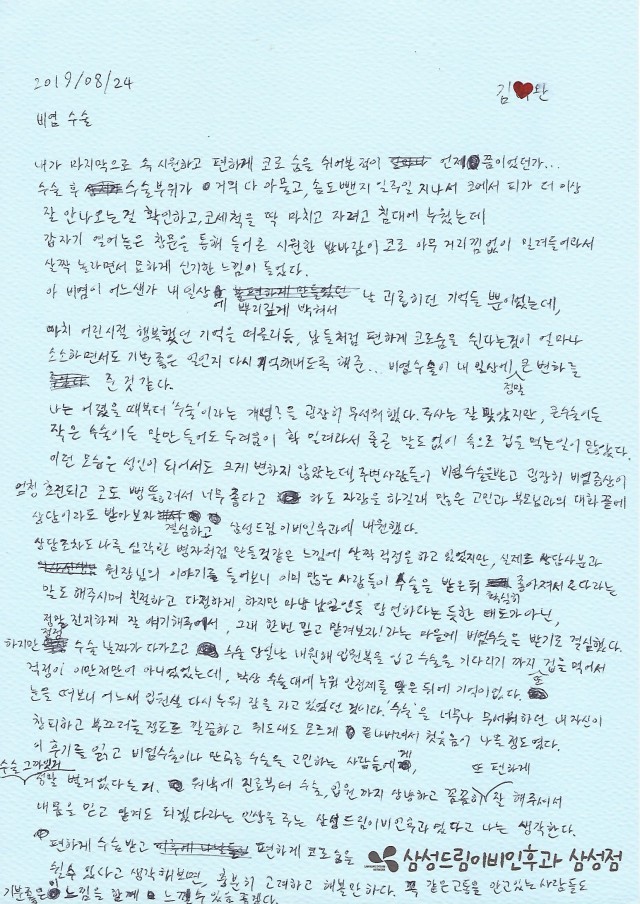 2019/08/24
김 완
비염 수술
내가 마지막으로 속 시원하고 편하게 코로 숨을 쉬어본적이 언제쯤이었던가...
수술 후 수술부위가 거의 다 아물고, 솜도 뺀지 일주일 지나서 코에서 피가 더 이상
잘 안나오는걸 확인하고, 코세척을 딱 마치고 자려고 침대에 누웠는데
갑자기 열어놓은 창문을 통해 들어온 시원한 밤바람이 코로 아무 거리낌없이 밀려들어와서
살짝 놀라면서 묘하게 신기한 느낌이 들었다.
아 비염이 어느샌가 내 일상에 뿌리깊게 박혀서 날 괴롭히던 기억들 뿐이었는데,
마치 어린시절 행복했던 기억을 떠올리듯, 남들처럼 편하게 코로숨을 쉰다는것이 얼마나
소소하면서도 기분좋은 일인지 다시 기억해내도록 해준... 비염수술이 내 일상에 정말 큰 변화를
준 것 같다.
나는 어렸을때부터 '수술'이라는 개념을 굉장히 무서워했다. 주사는 잘 맞았지만, 큰수술이든
작은 수술이든 말만 들어도 두려움이 확 밀려와서 줄곧 말도없이 속으로 겁을 먹는일이 많았다.
이런 모습은 성인이 되어서도 크게 변하지 않았는데, 주변사람들이 비염수술을받고 굉장히 비염증상이
엄청 호전되고 코도 뻥 뚫려서 너무 좋다고 하도 자랑을 하길래 많은 고민과 부모님과의 대화 끝에
상담이라도 받아보자 결심하고 삼성드림이비인후과에 내원했다.
상담조차도 나를 심각한 병자처럼 만들것같은 느낌에 살짝 걱정을 하고 있었지만, 실제로 상담사분과
원장님의 이야기를 들어보니 이미 많은 사람들이 수술을 받은뒤 확실히 좋아져서 온다라는
말도 해주시며 친절하고 다정하게, 하지만 마냥 남일인듯 당연하다는 듯한 태도가 아닌,
정말 진지하게 잘 얘기해주셔서, 그래 한번 믿고 맡겨보자! 라는 마음에 비염수술을 받기로 결심했다.
하지만 점점 수술 날짜가 다가오고 수술 당일날 내원해 입원복을 입고 수술을 기다리기 까지 또 겁을 먹어서
걱정이 이만저만이 아니었었는데, 막상 수술대에 누워 안정제를 맞은 뒤에 기억이 없다.
눈을 떠보니 어느새 입원실 다시 누워 잠을 자고 있었던 것이다. '수술'을 너무나 무서워하던 내 자신이
창피하고 부끄러울정도로 깔끔하고 쥐도새도 모르게 끝나버려서 헛웃음이 나올 정도였다.
이 후기를 읽고 비염수술이나 만곡증 수술을 고민하는 사람들에게,
수술 그까짓거 정말 별거 없다는걸. 워낙에 진료부터 수술, 입원 까지 상냥하고 꼼꼼히 또 편하게 잘 해주셔서
내몸을 믿고 맡겨도 되겠다라는 인상을 주는 삼성드림이비인후과였다고 나는 생각한다.
편하게 수술받고 편하게 코로숨을
쉴수 있다고 생각해보면, 충분히 고려하고 해볼만 하다. 꼭 같은고통을 안고있는 사람들도
기분좋은 느낌을 함께 느낄수 있음 좋겠다.
삼성드림이비인후과 삼성점